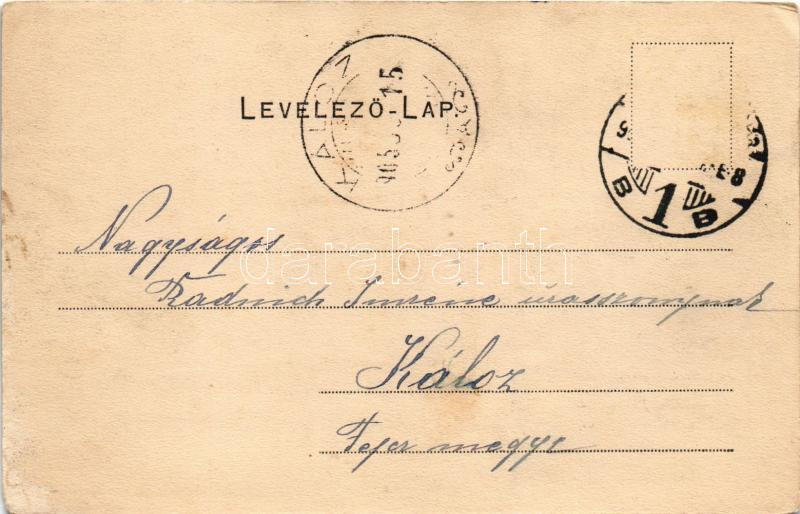 LEVELEZŐ-LAP.
KÁLOZ
905
15
1
B B
E8
Nagyságos
darabanth
Radnich Imréné úrasszonynak
Káloz
Fejér megye